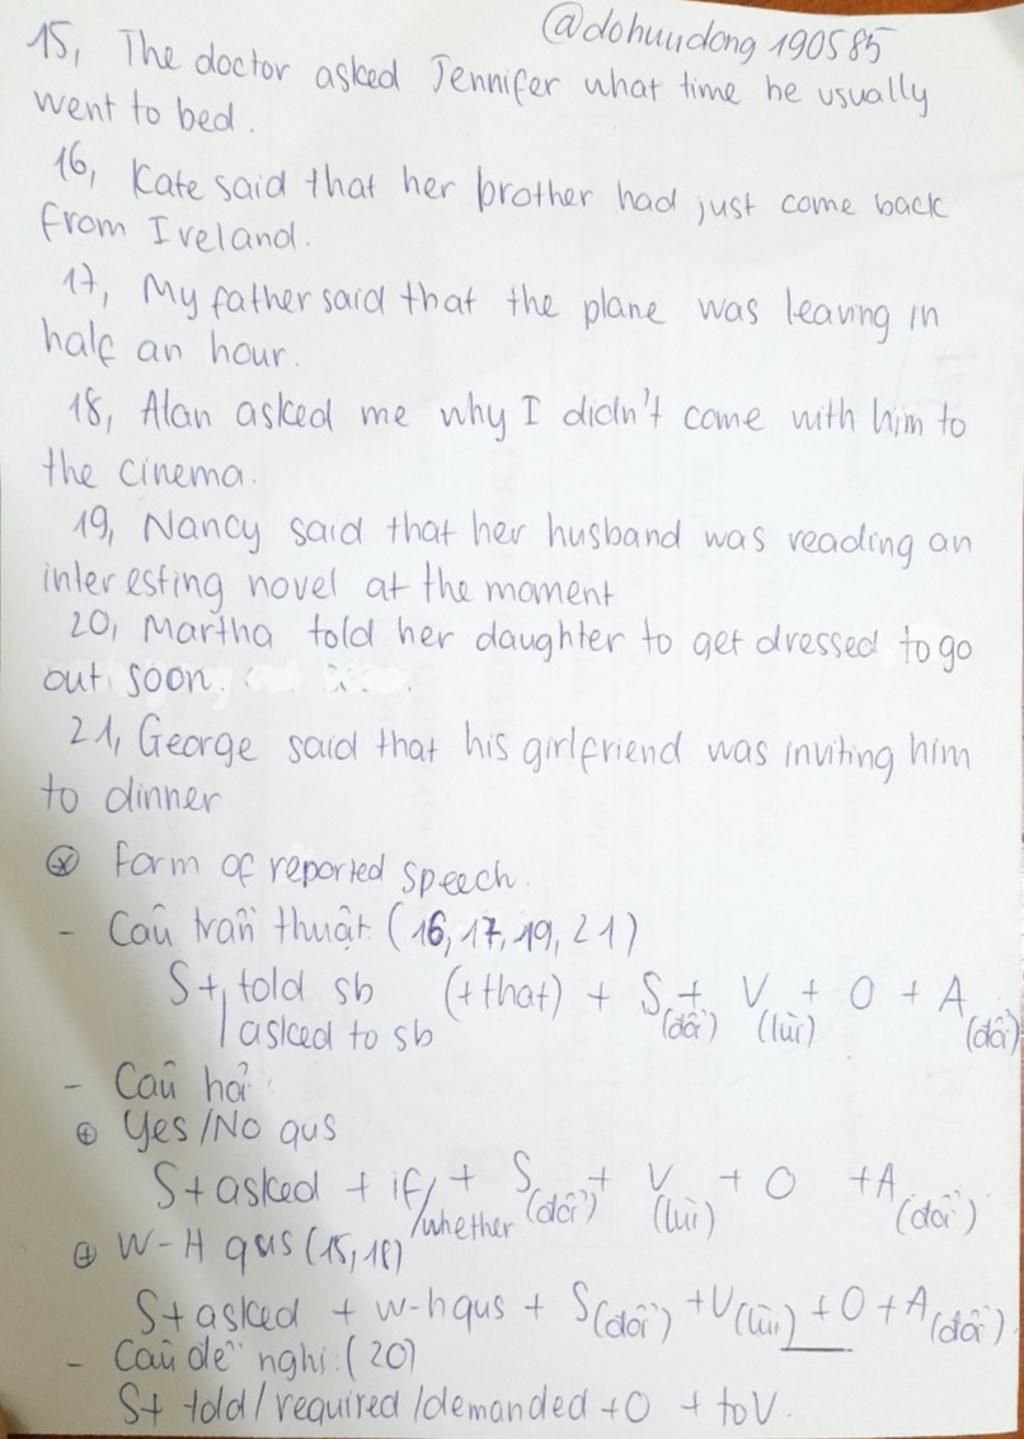 @dohuudong190585
15, The doctor asked Jennifer what time he usually
went to bed.
16, Kate said that her brother had just come back
from Ireland.
17, My father said that the plane was leaving in
half an hour.
18, Alan asked me why I didn't come with him to
the cinema.
19, Nancy said that her husband was reading an
interesting novel at the moment
20, Martha told her daughter to get dressed to go
out soon.
21, George said that his girlfriend was inviting him
to dinner
⊛ Form of reported speech.
- Câu trần thuật: (16, 17, 19, 21)
S + told sb (+ that) + S (đổi) + V (lùi) + O + A (đổi)
/ asked to sb
- Câu hỏi:
⊕ Yes/No qus
S + asked + if/whether + S (đổi) + V (lùi) + O + A (đổi)
⊕ W-H qus (15, 18)
S + asked + w-h qus + S (đổi) + V (lùi) + O + A (đổi)
- Câu đề nghị: (20)
S + told / required / demanded + O + to V.